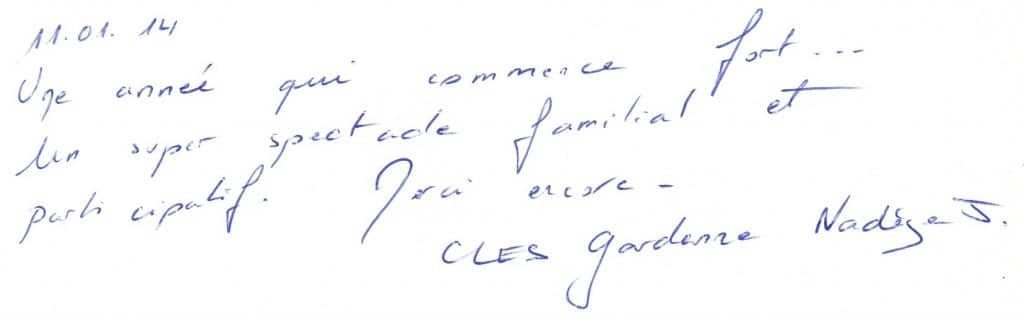 11.01.14
Une année qui commence fort...
Un super spectacle familial et
participatif. Merci encore -
CLES Gardanne Nadège J.